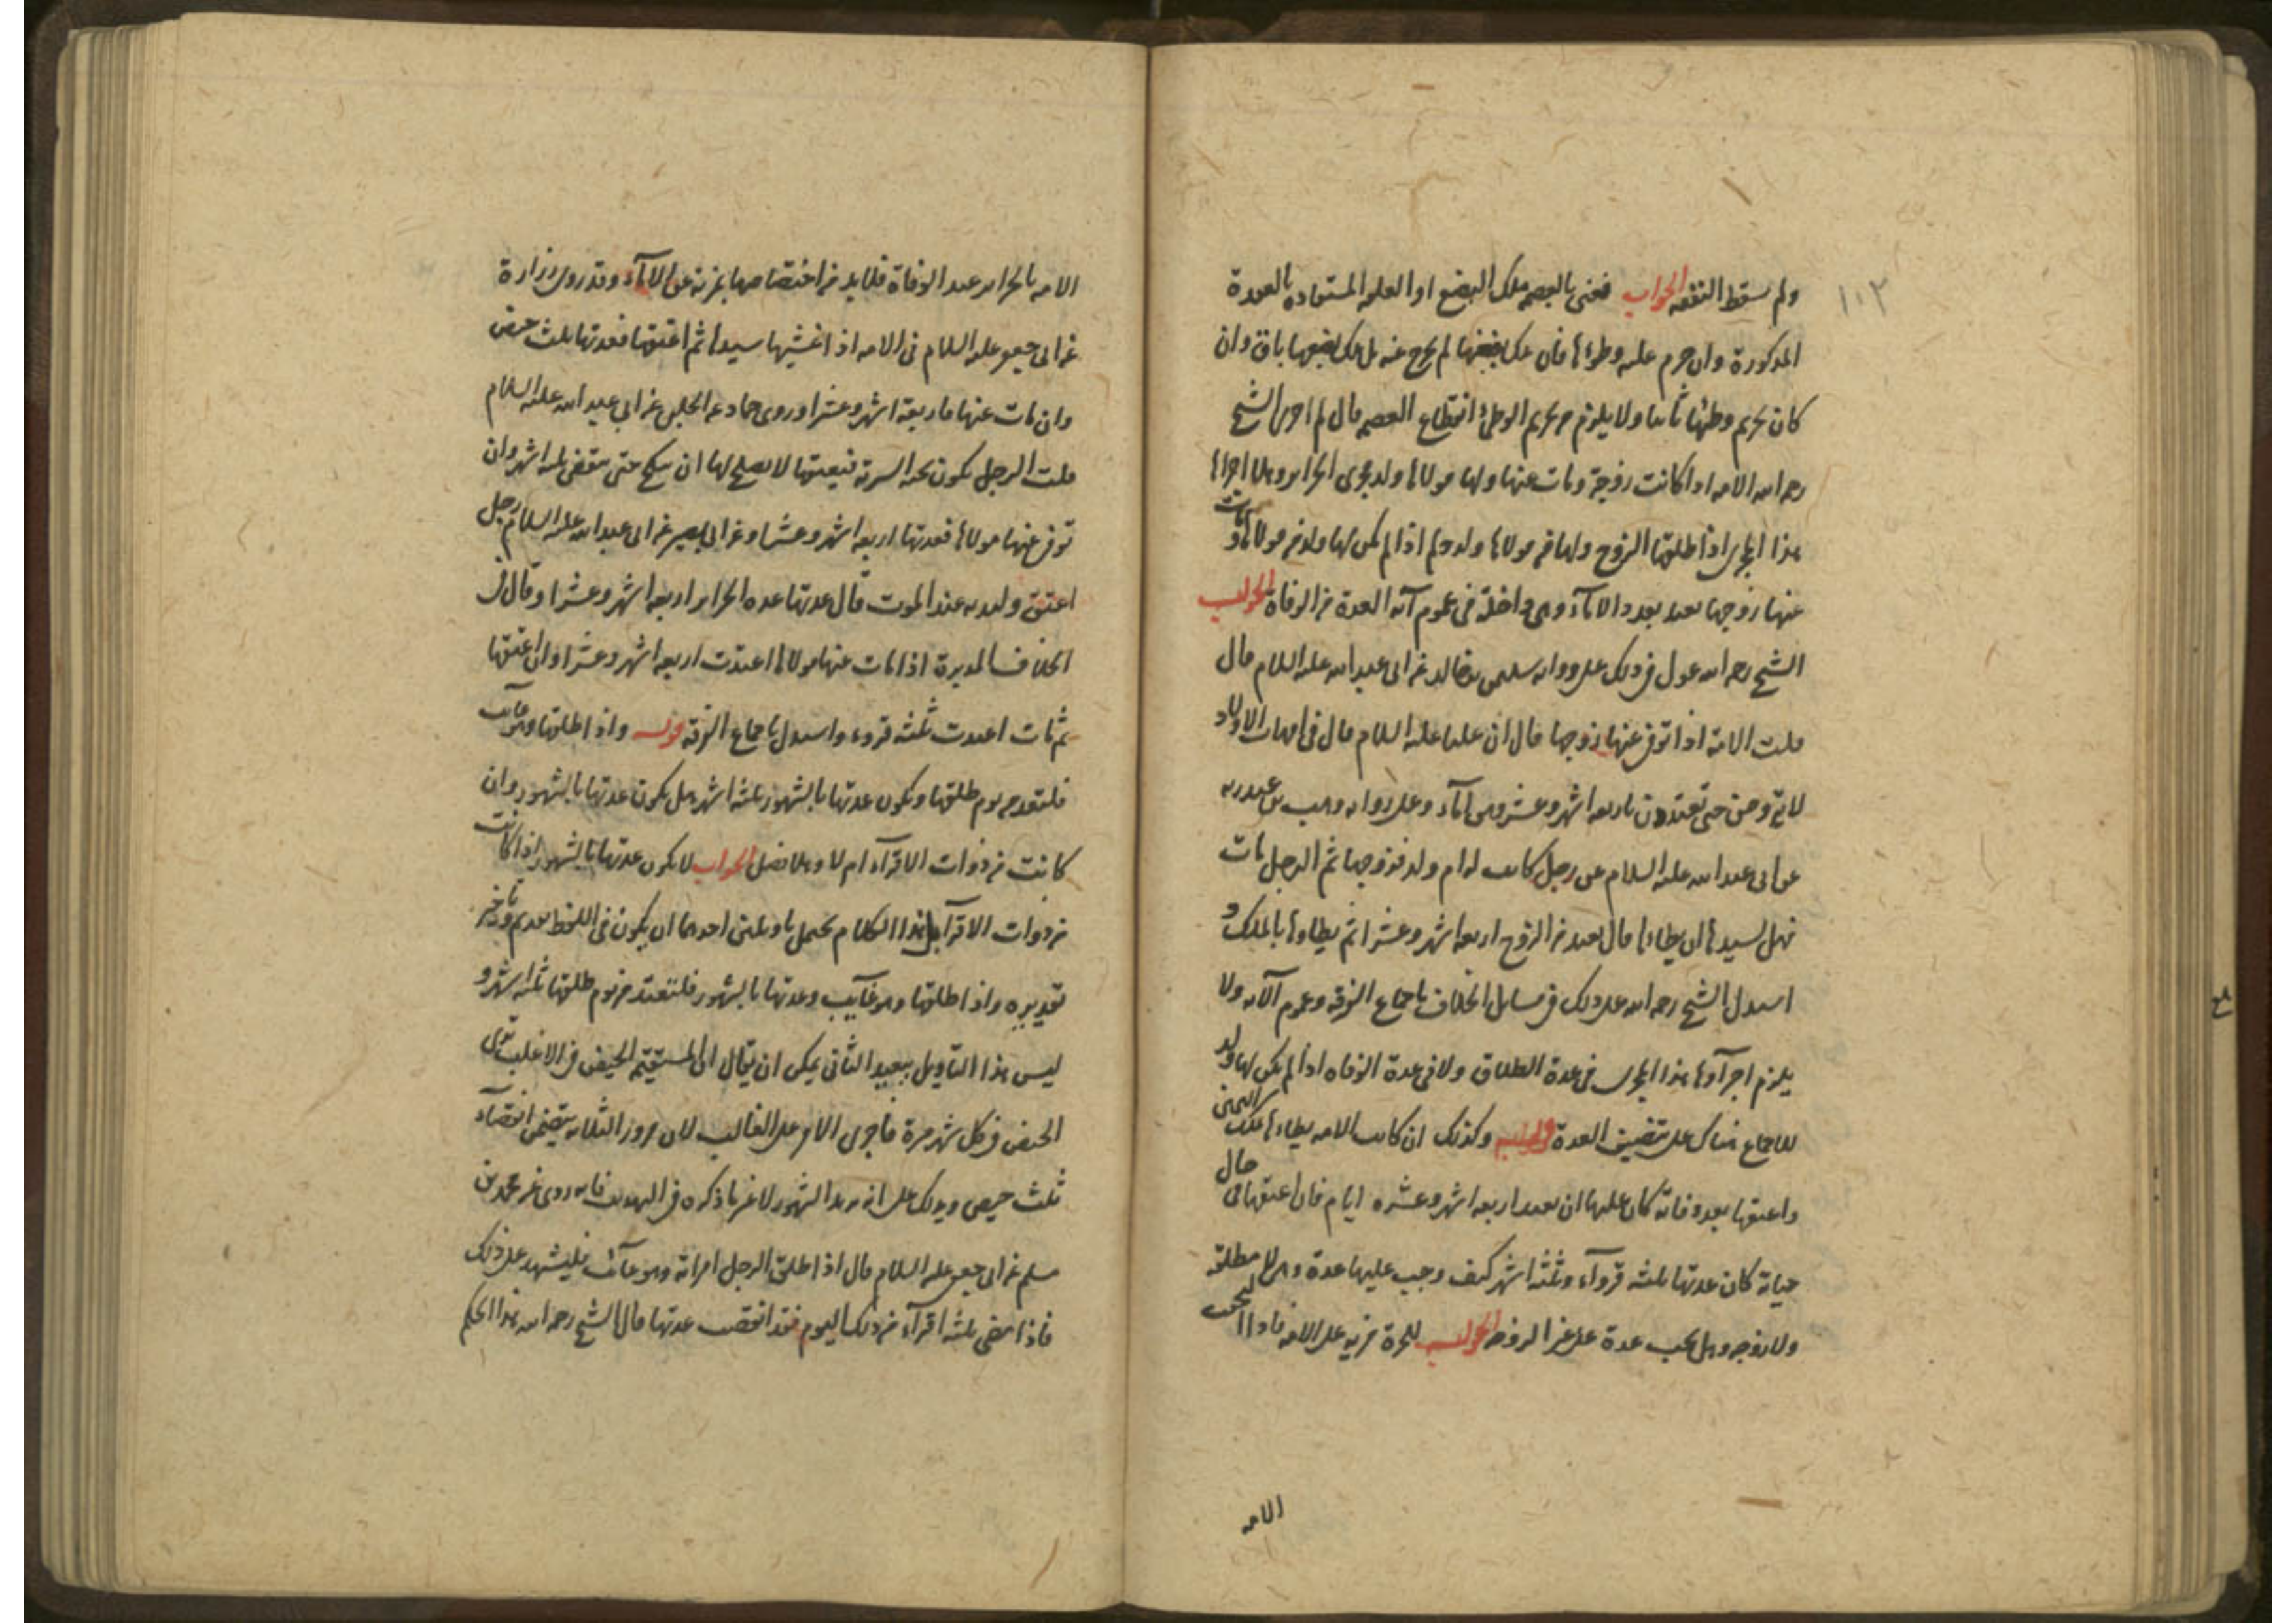 ١٠٢
ولم سقط النفقه الجواب فعنى بالعصمه ملك البضع او العلقه المستفاده بالعقدة
المذكورة وان حرم عليه وطؤها فان ملك بضعها لم يخرج عنه بل ملك بضعها باق وان
كان تحريم وطئها ثابتا ولا يلزم من تحريم الوطئ انقطاع العصمه قال لم اجرى الشيخ
رحمه الله الامه اذا كانت زوجة ومات عنها ولها مولاها ولد مجرى الحراير وهلا اجراها
هذا المجرى اذا طلقها الزوج ولها من مولاها ولد ولم اذا لم يكن لها ولد من مولاها ومات
عنها زوجها تعتد بعدد الاماء وهى داخلة فى عموم آية العدة من الوفاة الجواب
الشيخ رحمه الله عول فى ذلك على رواية سليمن بن خالد عن ابى عبد الله عليه السلام قال
قلت الامة اذا توفى عنها زوجها قال ان عليا عليه السلام قال فى امهات الاولاد
لا يتزوجن حتى تعتددن باربعه اشهر وعشر وهى اماء وعلى رواية وهب بن عبد ربه
عن ابى عبد الله عليه السلام عن رجل كانت له ام ولد فزوجها ثم الرجل مات
فهل لسيدها ان يطاها قال تعتد من الزوج اربعه اشهر وعشرا ثم يطاوها بالملك و
استدل الشيخ رحمه الله على ذلك فى مسايل الخلاف باجماع الفرقة وعموم الآية ولا
يلزم اجرآؤها هذا المجرى فى عدة الطلاق ولا فى عدة الوفاة اذا لم يكن لها ولد
للاجماع هناك على تنصيف العدة قوله وكذلك ان كانت الامه يطاءها بملك اليمين
واعتقها بعد وفاته كان عليها ان تعتد اربعه اشهر وعشره ايام فان اعتقها فى حال
حياته كان عدتها ثلثه قروآء وثلثة اشهر كيف وجب عليها عدة وهى لا مطلقة
ولا زوجه وهل تجب عدة على غير الزوجه الجواب للحرة مزيه على الامه فاذا التحقت
الامه
الامه بالحراير عند الوفاة فلابد من اختصاصها بمزية عن الاماء وقد روى زرارة
عن ابى جعفر عليه السلام فى الامه اذا غشيها سيدها ثم اعتقها فعدتها ثلث حيض
وان مات عنها فاربعة اشهر وعشرا وروى حماد عن الحلبى عن ابى عبد الله عليه السلام
قلت الرجل تكون تحته السرية فيعتقها لا يصلح لها ان تنكح حتى تنقضى ثلثه اشهر وان
توفى عنها مولاها فعدتها اربعه اشهر وعشرا وعن ابى بصير عن ابى عبد الله عليه السلام رجل
اعتق وليدته عند الموت قال عدتها عدة الحراير اربعه اشهر وعشرا وقال فى
الخلاف المدبرة اذا مات عنها مولاها اعتدت اربعه اشهر وعشرا وان اعتقها
ثم مات اعتدت ثلثه قروء واستدل باجماع الفرقه قوله واذا طلقها وهو غآئب
فلتعتد من يوم طلقها وتكون عدتها بالشهور ثلثه اشهر هل تكون عدتها بالشهور وان
كانت من ذوات الاقرآء ام لا وهلا فصل الجواب لا تكون عدتها بالشهور اذا كانت
من ذوات الاقرآء بل هذا الكلام يحتمل تاويلين احدهما ان يكون فى اللفظ تقديم وتاخير
تقديره واذا طلقها وهو غآئب وعدتها بالشهور فلتعتد من يوم طلقها ثلثه اشهر و
ليس هذا التاويل ببعيد الثانى يمكن ان يقال ان المستقيمة الحيض فى الاغلب ترى
الحيض فى كل شهر مرة فاجرى الامر على الغالب لان مرور الثلاثه يقتضى انقضآء
ثلث حيض ويدلك على انه لم يرد الشهور لا غير ما ذكره فى التهذيب فانه روى عن محمد بن
مسلم عن ابى جعفر عليه السلام قال اذا طلق الرجل امراته وهو غآئب فليشهد على ذلك
فاذا مضى ثلثه اقرآء من ذلك اليوم فقد انقضت عدتها قال الشيخ رحمه الله هذا الحكم